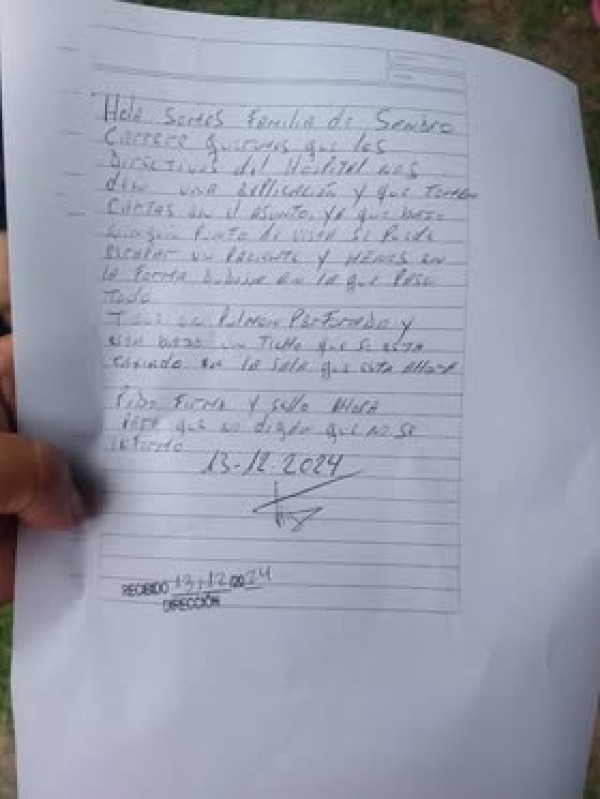 Hola Somos Familia de Sandro
Carrere queremos que los
Directivos del Hospital nos
den una explicación y que tomen
Cartas en el Asunto, ya que bajo
ningun Punto de vista se puede
escapar un Paciente y menos en
la forma en la que Paso
Todo
un Pulmon Perforado y
esta bajo un Techo que se esta
callendo en la sala que esta Ahora
Pido Firma y sello Ahora
Para que no digan que no se
informo
13-12-2024
RECIBIDO 13/12/2024
DIRECCIÓN